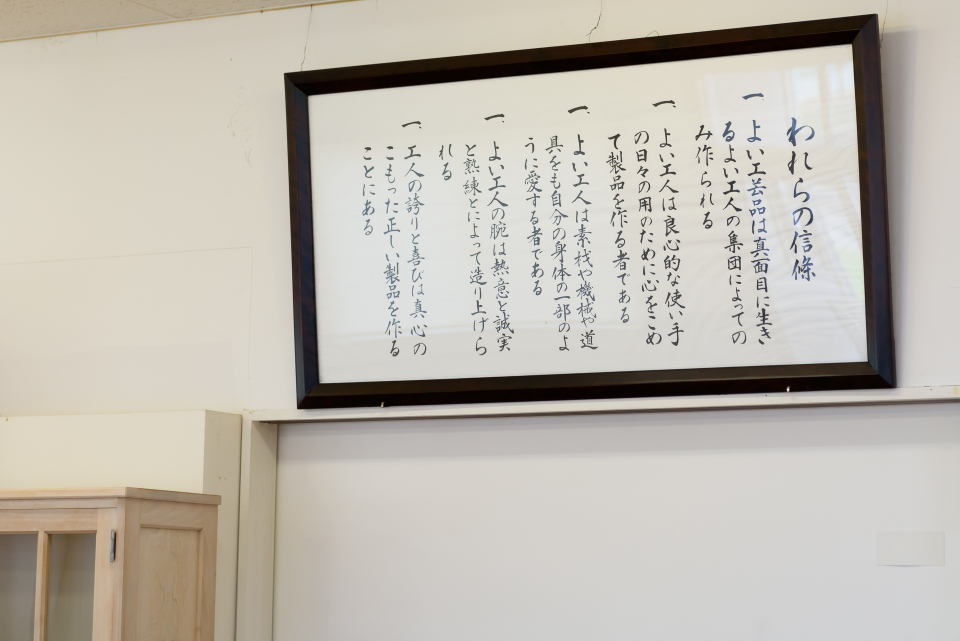 われらの信條
一、よい工芸品は真面目に生き
るよい工人の集団によっての
み作られる
一、よい工人は良心的な使い手
の日々の用のために心をこめ
て製品を作る者である
一、よい工人は素材や機械や道
具をも自分の身体の一部のよ
うに愛する者である
一、よい工人の腕は熱意と誠実
と熟練とによって造り上げら
れる
一、工人の誇りと喜びは真心の
こもった正しい製品を作る
ことにある